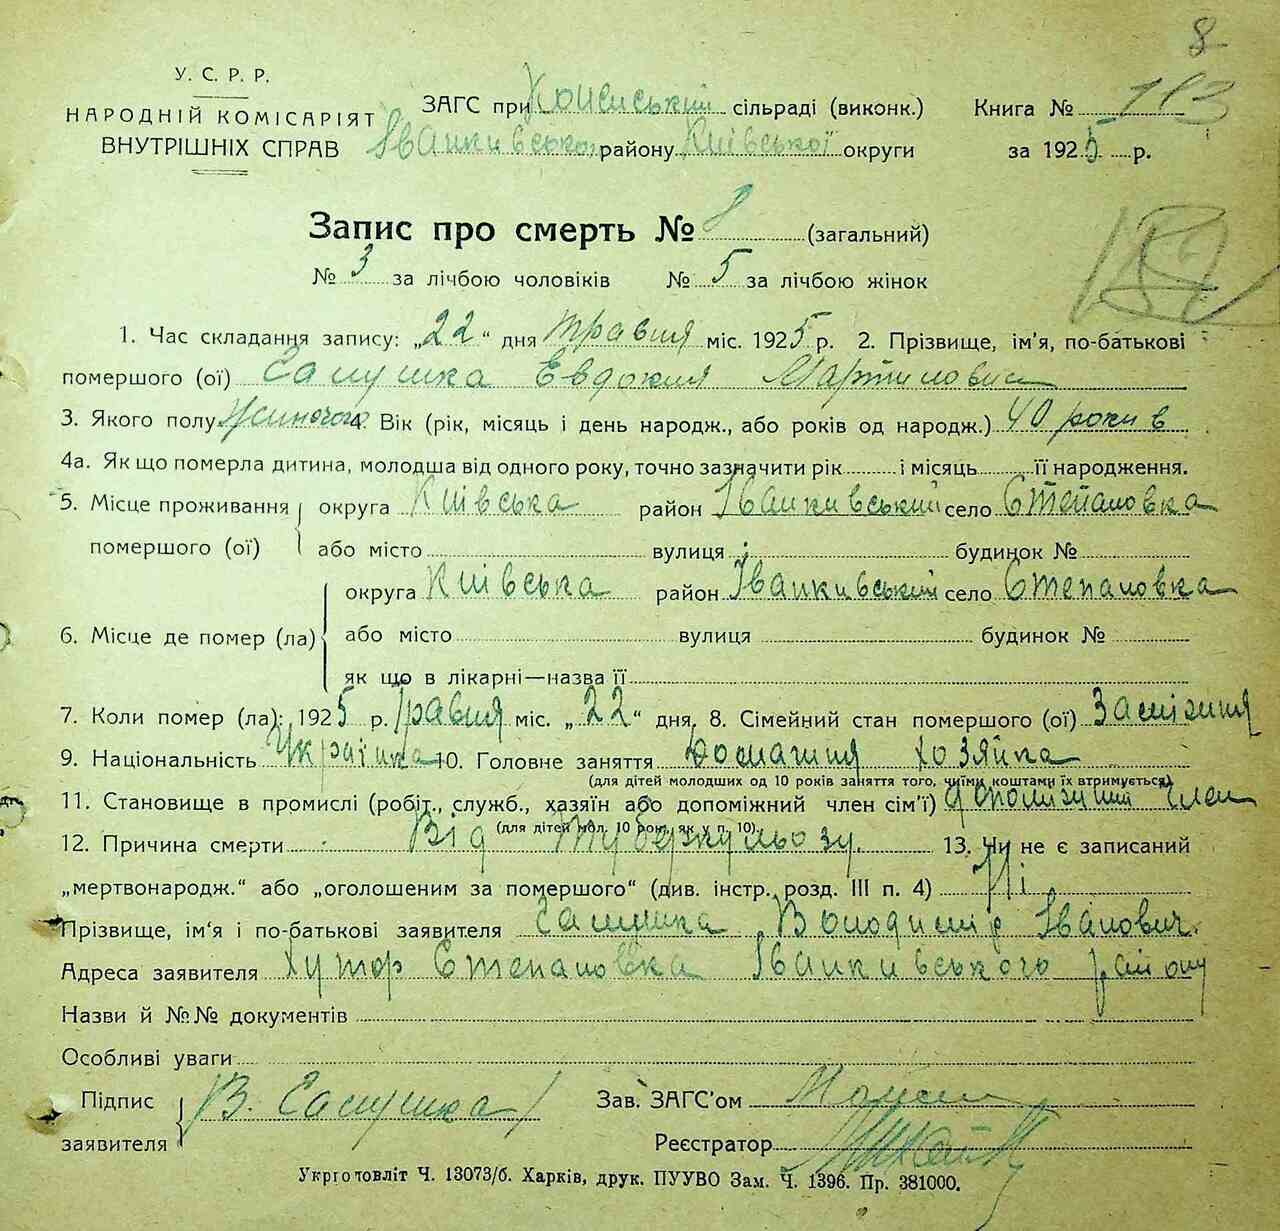 8
У. С. Р. Р.
НАРОДНІЙ КОМІСАРІЯТ
ВНУТРІШНІХ СПРАВ
ЗАГС при сільраді (виконк.)
Іванківського району Київської округи
Книга № 113
за 1925 р.
Запис про смерть № 8 (загальний)
№ 3 за лічбою чоловіків № 5 за лічбою жінок
1. Час складання запису: „22“ дня травня міс. 1925 р. 2. Прізвище, ім'я, по-батькові
помершого (ої) Евдокия Мартиновна
3. Якого полу Жиночого 4. Вік (рік, місяць і день народж., або років од народж.) 40 рокив
4а. Як що померла дитина, молодша від одного року, точно зазначити рік і місяць її народження.
5. Місце проживання помершого (ої) округа Київська район Іванкивський село Степановка
або місто вулиця будинок №
6. Місце де помер (ла) округа Київська район Іванкивський село Степановка
або місто вулиця будинок №
як що в лікарні—назва її
7. Коли помер (ла): 1925 р. Травня міс. „22“ дня. 8. Сімейний стан помершого (ої) Заміжня
9. Національність Українка 10. Головне заняття домашня хозяйка
(для дітей молодших од 10 років заняття того, чиїми коштами їх втримується)
11. Становище в промислі (робіт., служб., хазяїн або допоміжний член сім'ї) допоміжний член
(для дітей мол. 10 рок. як у п. 10).
12. Причина смерти Від туберкульозу. 13. Чи не є записаний
„мертвонародж.“ або „оголошеним за помершого“ (див. інстр. розд. III п. 4) Ні
Прізвище, ім'я і по-батькові заявителя Володимір Іванович
Адреса заявителя Хутор Степановка Іванкивського району
Назви й №№ документів
Особливі уваги
Підпис заявителя В.
Зав. ЗАГС'ом
Реєстратор
Укрготовліт Ч. 13073/б. Харків, друк. ПУУВО Зам. Ч. 1396. Пр. 381000.